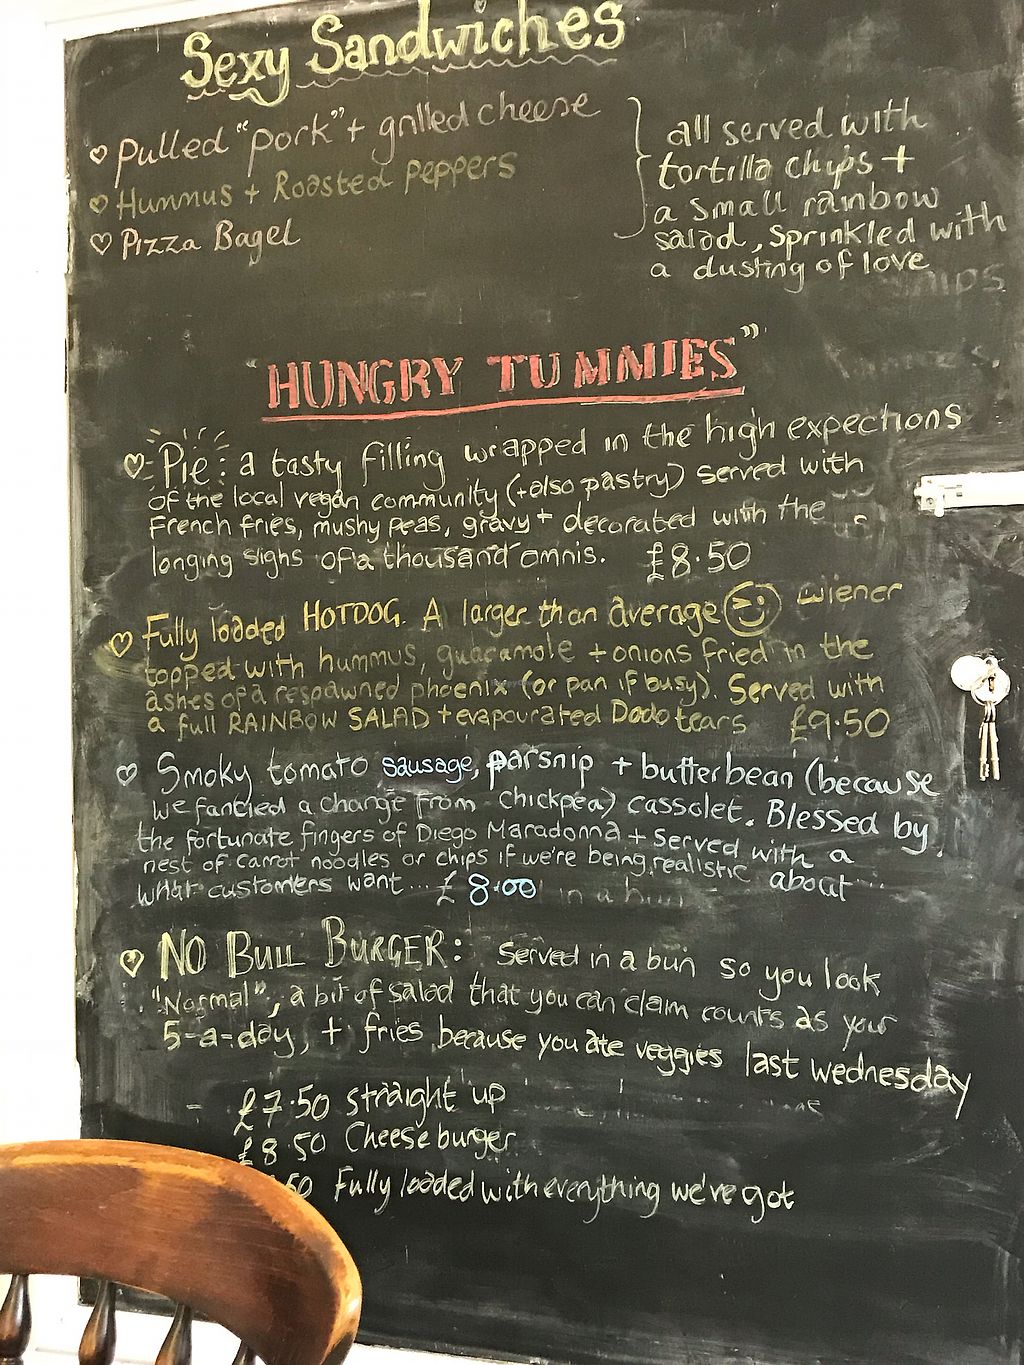 Sexy Sandwiches
♡ Pulled "pork" + grilled cheese
♡ Hummus + Roasted Peppers
♡ Pizza Bagel
all served with
tortilla chips +
a small rainbow
salad, sprinkled with
a dusting of love
"HUNGRY TUMMIES"
♡ Pie: a tasty filling wrapped in the high expections
of the local vegan community (+ also pastry) served with
French fries, mushy peas, gravy + decorated with the
longing sighs of a thousand omnis. £8.50
♡ Fully loaded HOTDOG. A larger than average wiener
topped with hummus, guacamole + onions fried in the
ashes of a respawned phoenix (or pan if busy). Served with
a full RAINBOW SALAD + evapourated Dodo tears £9.50
♡ Smoky tomato sausage, parsnip + butterbean (because
we fancied a change from chickpea) cassolet. Blessed by
the fortunate fingers of Diego Maradona + served with a
nest of carrot noodles or chips if we're being realistic about
what customers want... £8.00
♡ NO BULL BURGER: Served in a bun so you look
"Normal", a bit of salad that you can claim counts as your
5-a-day, + fries because you ate veggies last wednesday
- £7.50 straight up
£8.50 Cheese burger
.50 Fully loaded with everything we've got